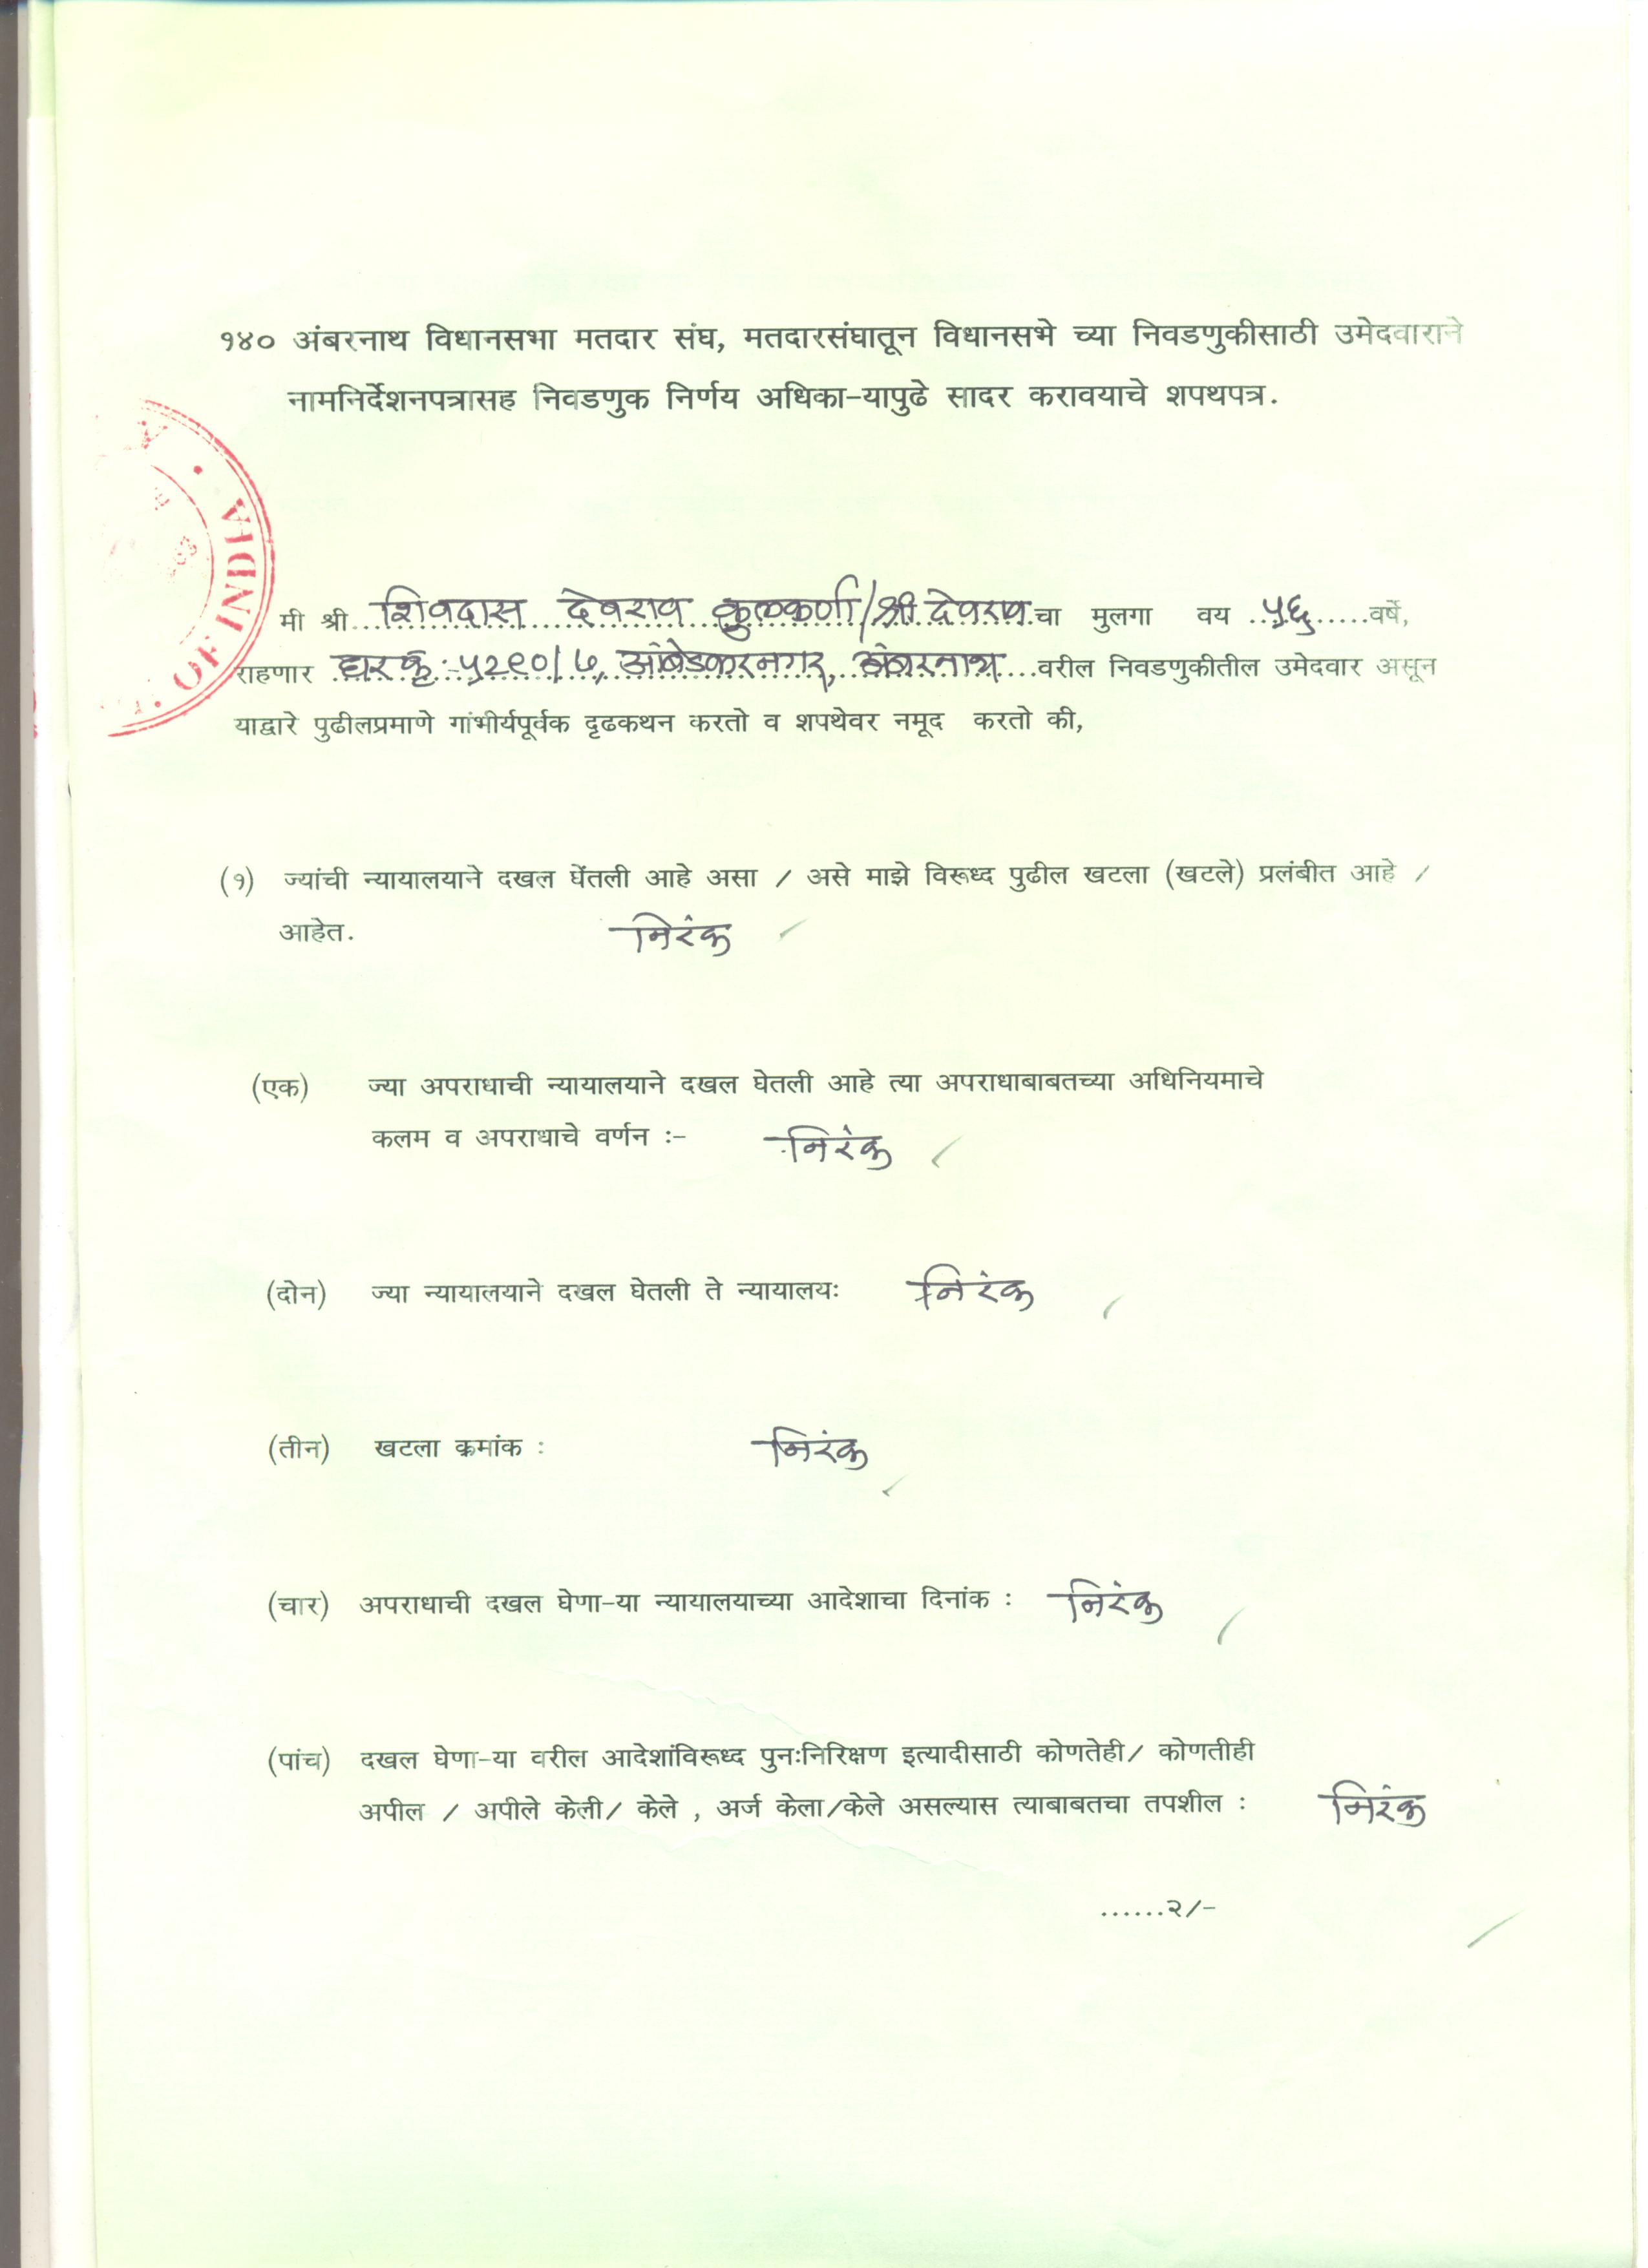 १४० अंबरनाथ विधानसभा मतदार संघ, मतदारसंघातून विधानसभे च्या निवडणुकीसाठी उमेदवाराने
नामनिर्देशनपत्रासह निवडणुक निर्णय अधिका-यापुढे सादर करावयाचे शपथपत्र.
OF INDIA
मी श्री...शिवदास देवराव कुळकर्णी/श्री देवराव.चा मुलगा वय ..५६......वर्षे,
राहणार घर क्रं:-५२९०/७, आंबेडकरनगर, अंबरनाथ....वरील निवडणुकीतील उमेदवार असून
याद्वारे पुढीलप्रमाणे गांभीर्यपूर्वक दृढकथन करतो व शपथेवर नमूद करतो की,
(१) ज्यांची न्यायालयाने दखल घेंतली आहे असा / असे माझे विरूध्द पुढील खटला (खटले) प्रलंबीत आहे /
आहेत. निरंक
(एक) ज्या अपराधाची न्यायालयाने दखल घेतली आहे त्या अपराधाबाबतच्या अधिनियमाचे
कलम व अपराधाचे वर्णन :- निरंक
(दोन) ज्या न्यायालयाने दखल घेतली ते न्यायालयः निरंक
(तीन) खटला क्रमांक : निरंक
(चार) अपराधाची दखल घेणा-या न्यायालयाच्या आदेशाचा दिनांक : निरंक
(पांच) दखल घेणा-या वरील आदेशांविरूध्द पुनःनिरिक्षण इत्यादीसाठी कोणतेही/ कोणतीही
अपील / अपीले केली/ केले , अर्ज केला/केले असल्यास त्याबाबतचा तपशील : निरंक
......२/-